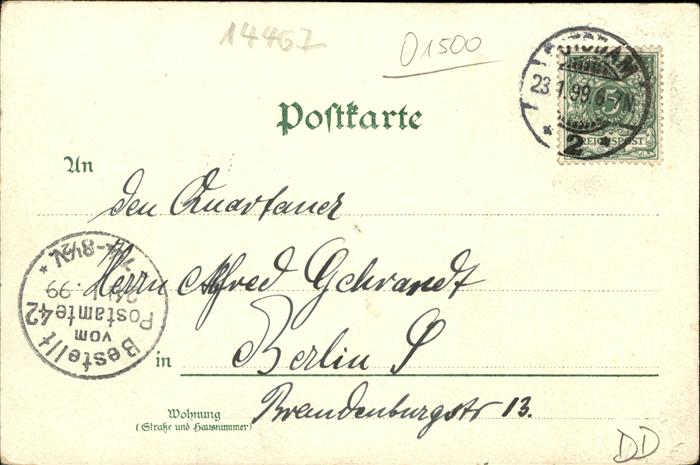 14467
01500
POTSDAM
23.1.99.6-7N.
* 2 *
5
REICHSPOST
Postkarte
An
den Quartaner
Herrn Alfred Gehrandt
in Berlin S
Wohnung
(Straße und Hausnummer)
Brandenburgstr 13.
Bestellt
vom
Postamte 42
24.1.99
7¼-8½N.
DD